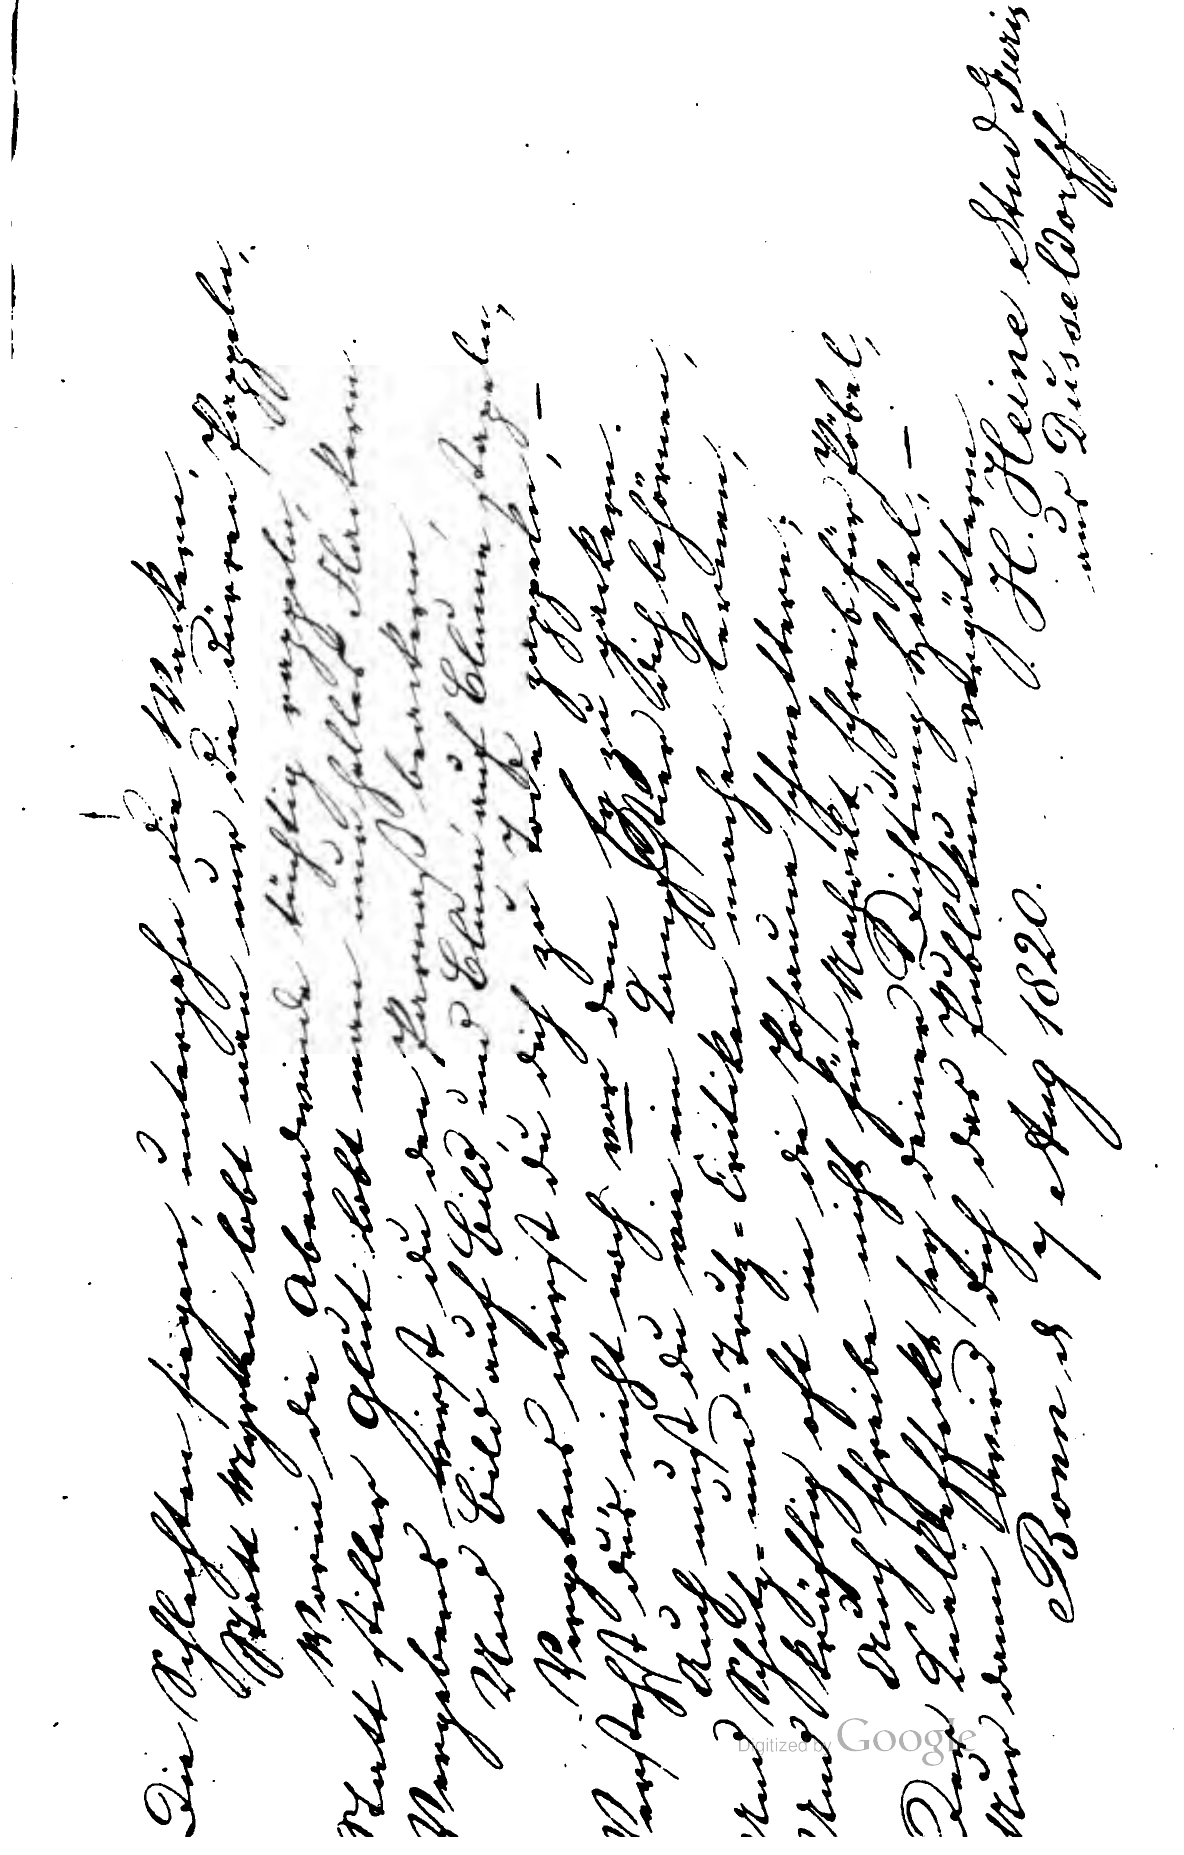 Die Schlechten siegen, untergehn die Wackern,
Statt Myrthen lobt man nur die dürren Pappeln,
Worin die Abendwinde tüchtig rappeln,
Statt stiller Glut lobt man nur helles Flackern.
Vergebens wirst du den Parnaß beackern,
Und Bild auf Bild und Blum' auf Blume stapeln,
Vergebens wirst du dich zu Tode zappeln, —
Verstehst du's nicht noch vor dem Ey zu gackern.
Auch mußt du wie ein Kampfstier dich behörnen,
Und Schutz- und Trutz-Critiken machen lernen,
Und kräftig oft in die Posaune schmettern;
Auch schreibe nicht für Nachwelt, schreib für Pöbel,
Der Knalleffekt sey deiner Dichtung Hebel, —
Nur dann wird dich das Publikum vergöttern.
Bonn d 7 Aug 1820.
H. Heine Stud Juris
aus Düsseldorff
Digitized by Google